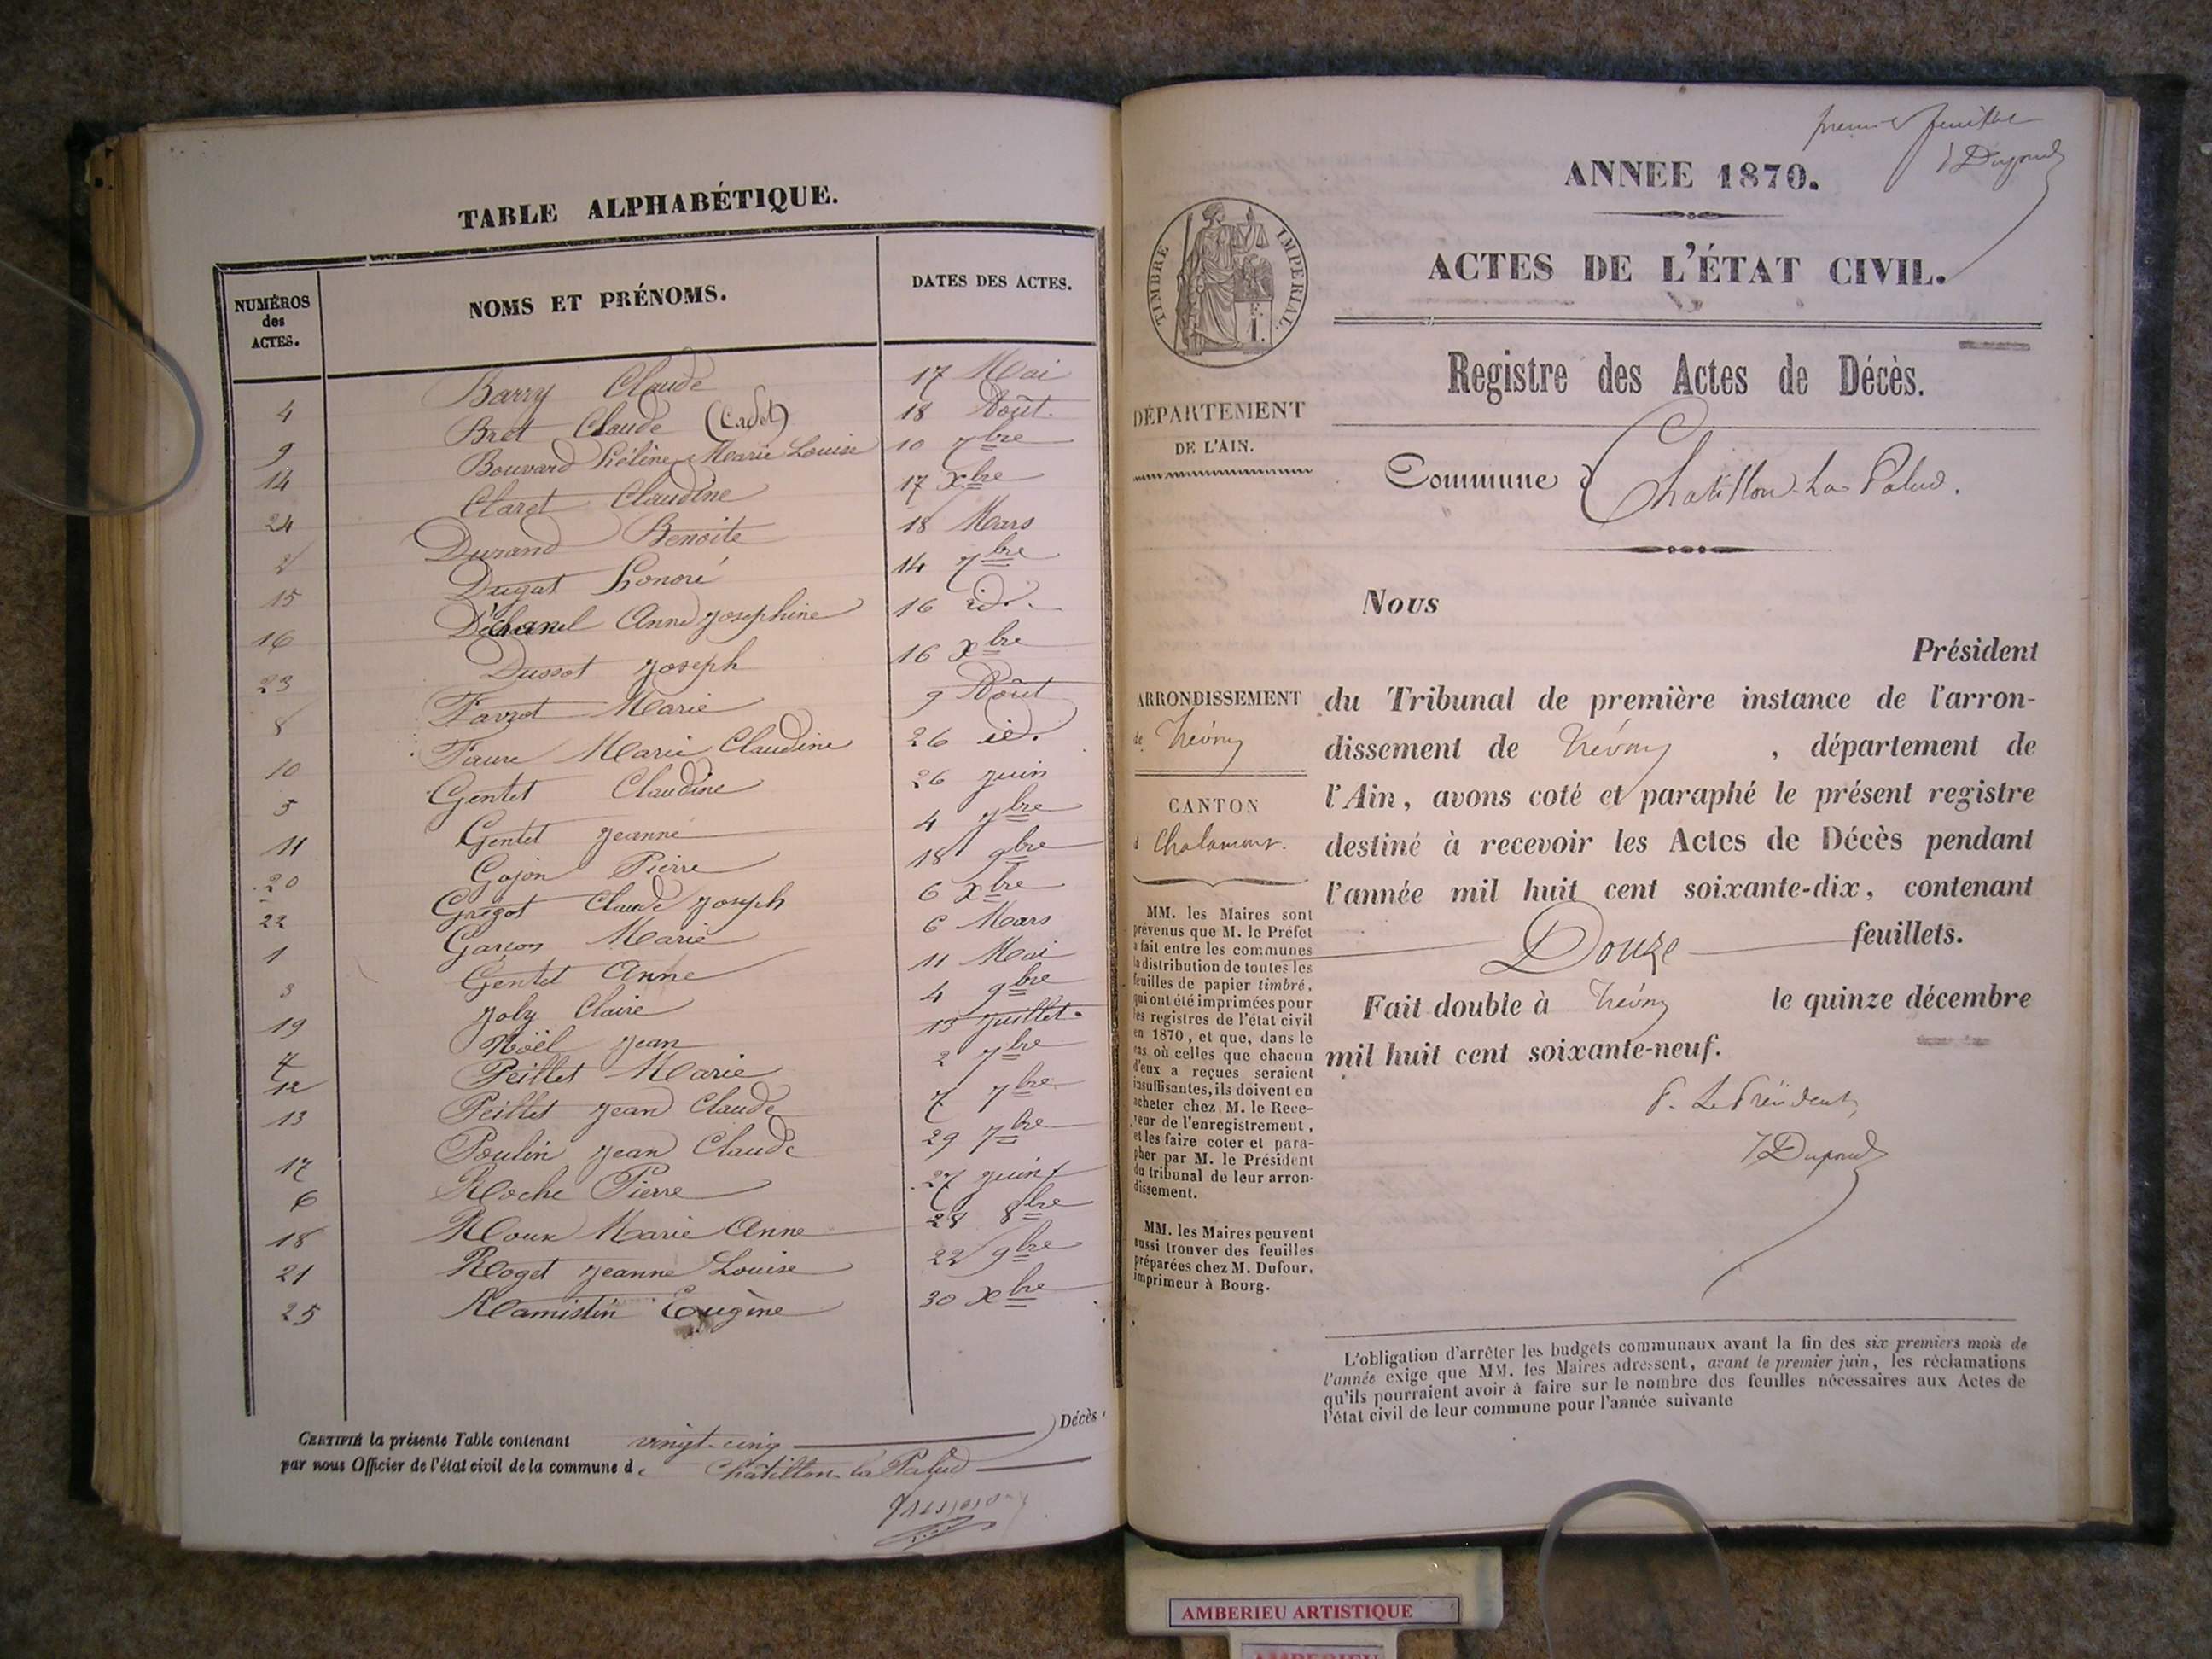 TABLE ALPHABÉTIQUE.
NUMÉROS des ACTES.
NOMS ET PRÉNOMS.
DATES DES ACTES.
4 Barry Claude 17 Mai
9 Bret Claude (Cadet) 18 Août.
14 Bouvard Hélène Marie Louise 10 7bre
24 Claret Claudine 17 Xbre
2 Durand Benoite 18 Mars
15 Dugat Honoré 14 7bre
16 Déchanel Anne Josephine 16 id.
23 Dussot Joseph 16 Xbre
8 Favrot Marie 9 Août
10 Faure Marie Claudine 26 id.
5 Gentet Claudine 26 Juin
11 Gentet Jeanne 4 7bre
20 Gojon Pierre 18 9bre
22 Gregot Claude Joseph 6 Xbre
1 Garçon Marie 6 Mars
3 Gentet Anne 11 Mai
19 Joly Claire 4 9bre
7 Noël Jean 13 Juillet.
12 Peillet Marie 2 7bre
13 Peillet Jean Claude 7 7bre
17 Poulin Jean Claude 29 7bre
6 Roche Pierre 27 Juin
18 Roux Marie Anne 28 8bre
21 Roget Jeanne Louise 22 9bre
25 Ramistin Eugène 30 Xbre
CERTIFIÉ la présente Table contenant vingt-cinq Décès
par nous Officier de l'état civil de la commune de Châtillon-la Palud
premier feuillet
Dupond
ANNEE 1870.
ACTES DE L'ÉTAT CIVIL.
TIMBRE IMPERIAL.
Registre des Actes de Décès.
DÉPARTEMENT
DE L'AIN.
Commune d Chatillon-La-Palud.
Nous
Président
ARRONDISSEMENT
de Trévoux
CANTON
d Chalamont.
du Tribunal de première instance de l'arron-
dissement de Trévoux , département de
l'Ain, avons coté et paraphé le présent registre
destiné à recevoir les Actes de Décès pendant
l'année mil huit cent soixante-dix, contenant
Douze feuillets.
Fait double à Trévoux le quinze décembre
mil huit cent soixante-neuf.
P. Le Président,
Dupond
MM. les Maires sont
prévenus que M. le Préfet
a fait entre les communes
la distribution de toutes les
feuilles de papier timbré,
qui ont été imprimées pour
les registres de l'état civil
en 1870, et que, dans le
cas où celles que chacun
d'eux a reçues seraient
insuffisantes, ils doivent en
acheter chez M. le Rece-
veur de l'enregistrement,
et les faire coter et para-
pher par M. le Président
du tribunal de leur arron-
dissement.
MM. les Maires peuvent
aussi trouver des feuilles
préparées chez M. Dufour,
imprimeur à Bourg.
L'obligation d'arrêter les budgets communaux avant la fin des six premiers mois de
l'année exige que MM. les Maires adressent, avant le premier juin, les réclamations
qu'ils pourraient avoir à faire sur le nombre des feuilles nécessaires aux Actes de
l'état civil de leur commune pour l'année suivante
AMBERIEU ARTISTIQUE
AMBERIEU